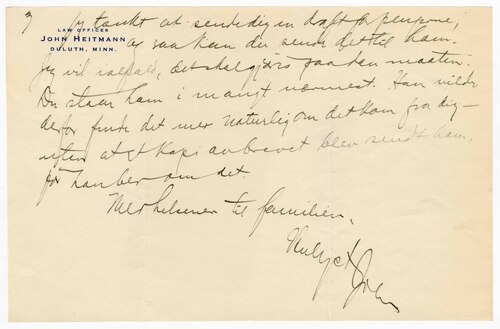 LAW OFFICES
JOHN HEITMANN
DULUTH, MINN.
Jeg tænkt at sende dig en draft for pengene,
og saa kan du sende det til ham.
Jeg vil ialfald, det skal gjøres paa den maaten.
Du staar ham i mangt nærmest. Han vilde
derfor finde det mer naturlig om det kom fra dig -
uten at et kopi av brevet blev sendt ham,
før han ber om det.
Med hilsener til familien,
John